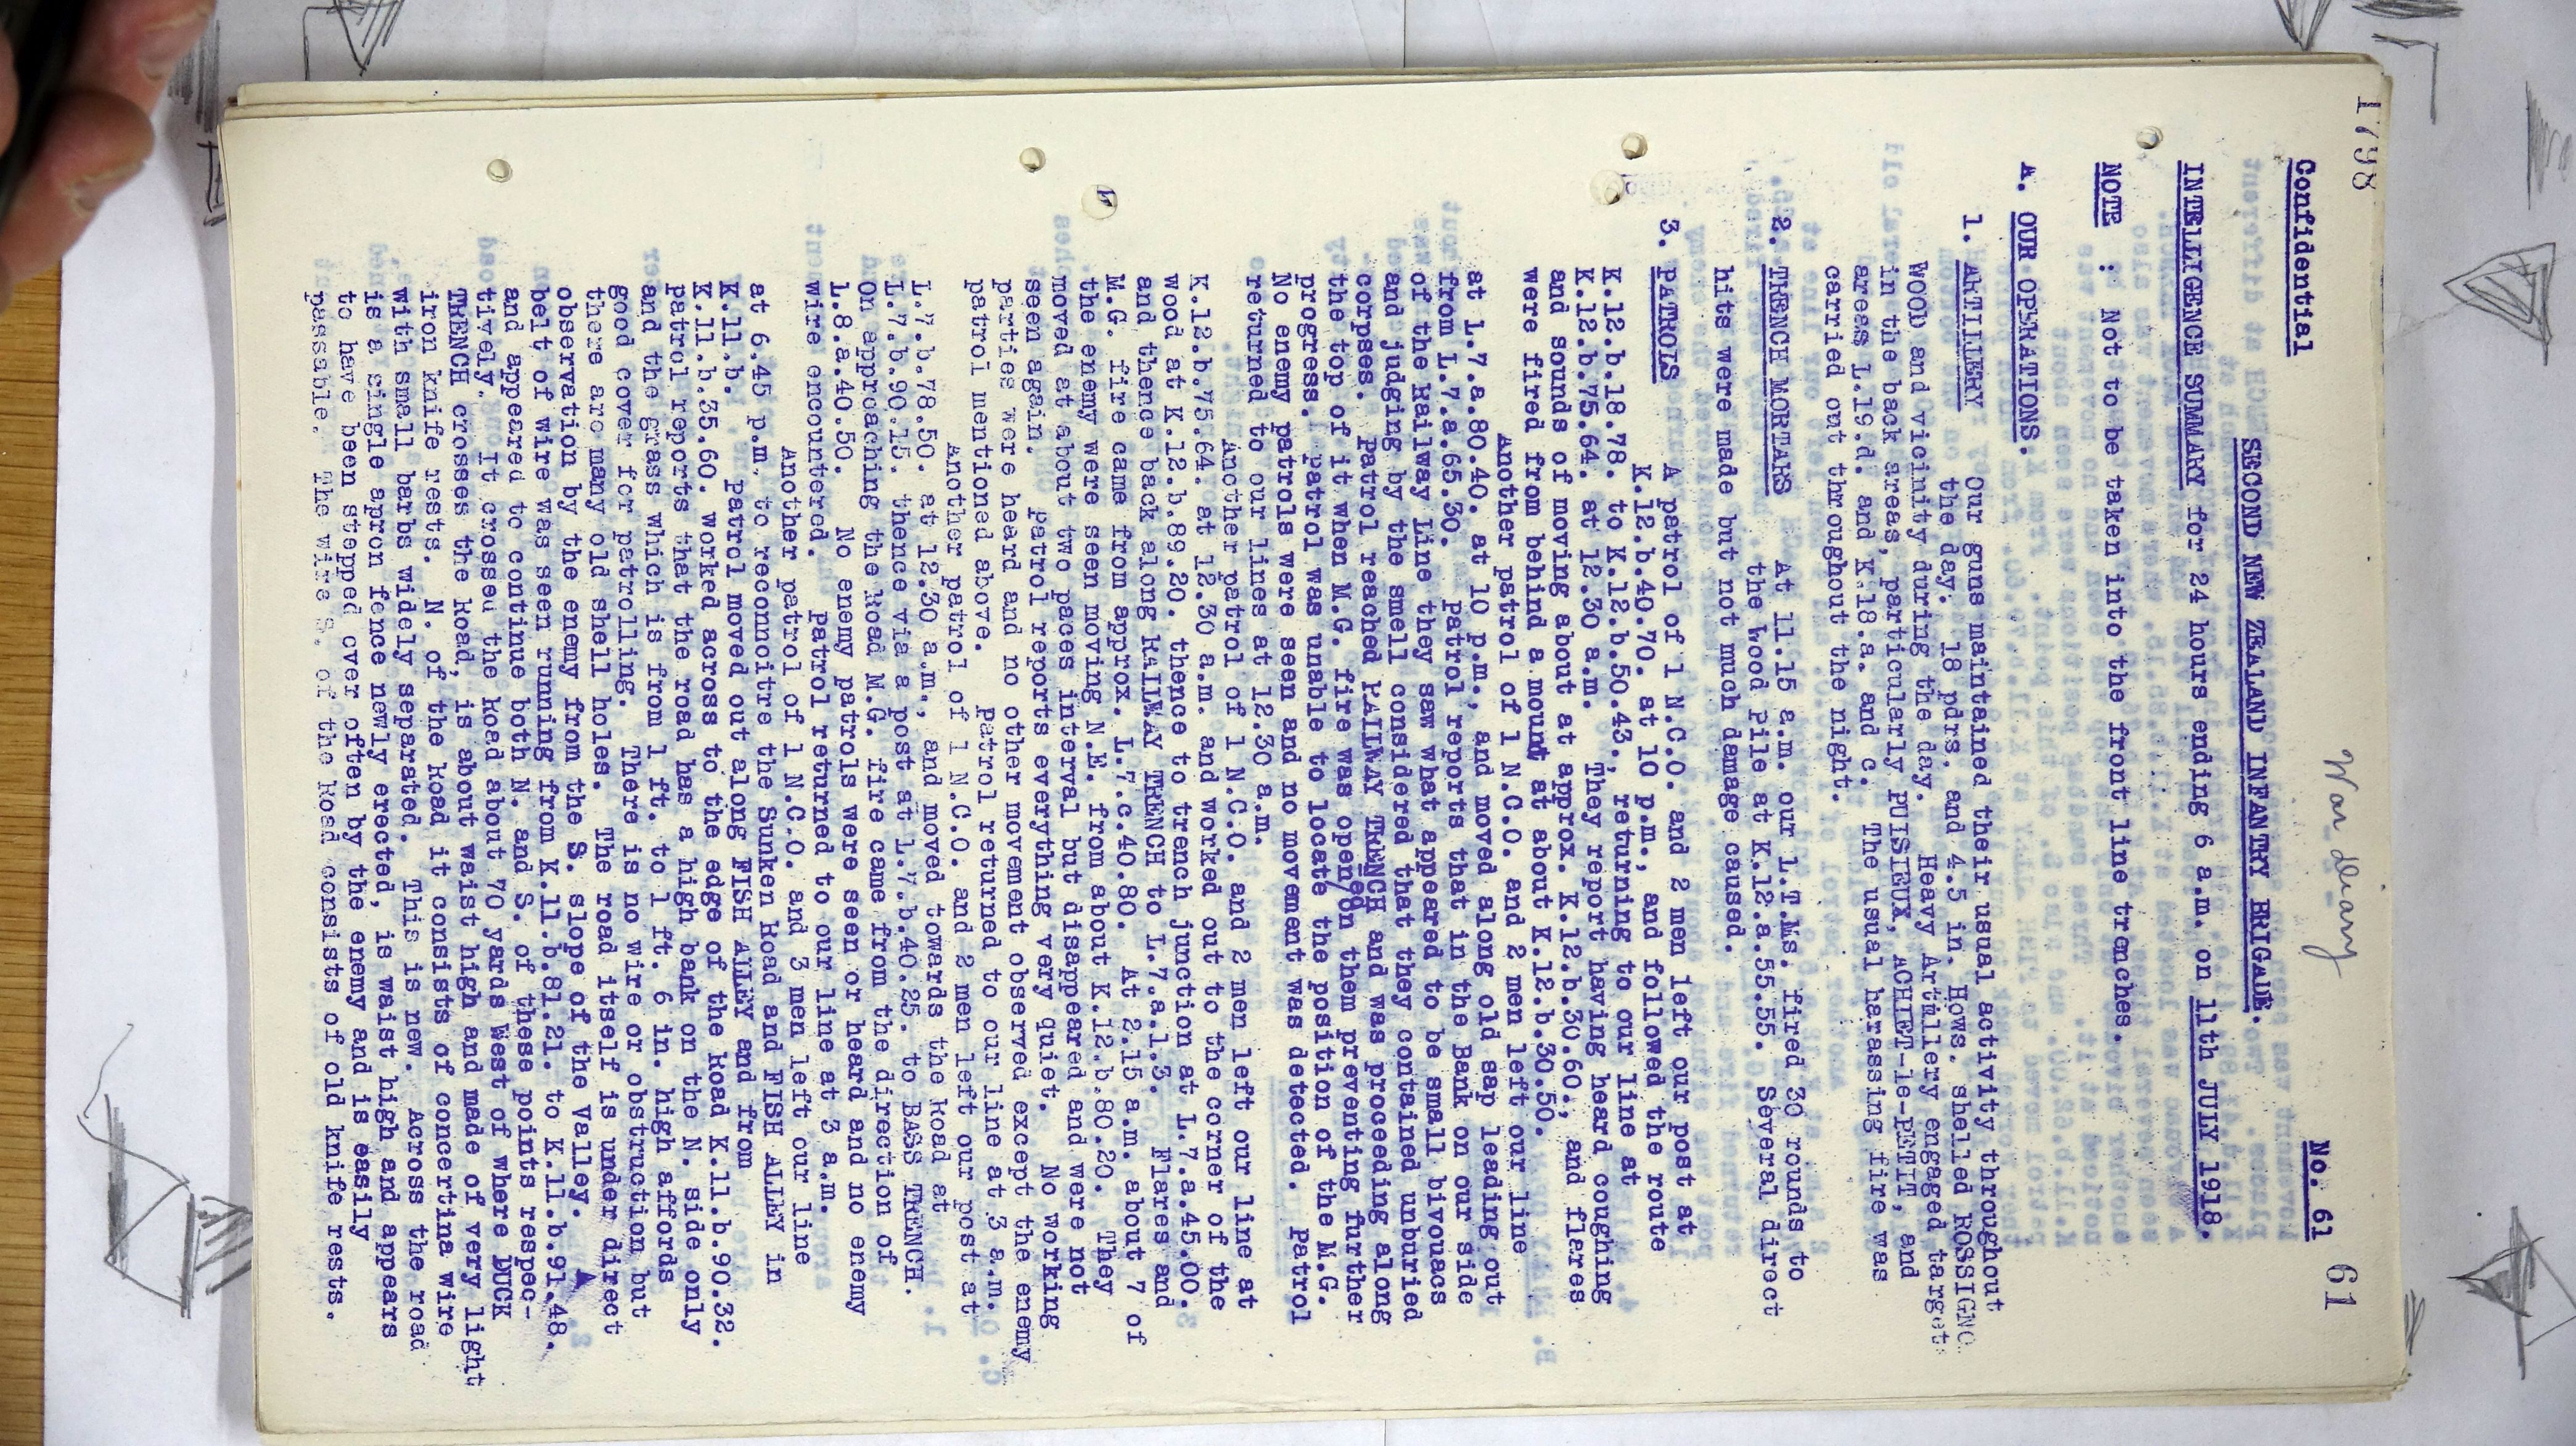 1798
War diary
Confidential No. 61 61
SECOND NEW ZEALAND INFANTRY BRIGADE.
INTELLIGENCE SUMMARY for 24 hours ending 6 a.m. on 11th JULY 1918.
NOTE : Not to be taken into the front line trenches.
A. OUR OPERATIONS.
1. ARTILLERY Our guns maintained their usual activity throughout
the day. 18 pdrs. and 4.5 in. Hows. shelled ROSSIGNO
WOOD and vicinity during the day. Heavy Artillery engaged target
in the back areas, particularly PUISIEUX, ACHIET-le-PETIT, and
areas L.19.d. and K.18.a. and c. The usual harassing fire was
carried out throughout the night.
2. TRENCH MORTARS At 11.15 a.m. our L.T.Ms. fired 30 rounds to
the Wood Pile at K.12.a.55.55. Several direct
hits were made but not much damage caused.
3. PATROLS A patrol of 1 N.C.O. and 2 men left our post at
K.12.b.40.70. at 10 p.m., and followed the route
K.12.b.18.78. to K.12.b.50.43., returning to our line at
K.12.b.75.64. at 12.30 a.m. They report having heard coughing
and sounds of moving about at approx. K.12.b.30.60., and flares
were fired from behind a mount at about K.12.b.30.50.
Another patrol of 1 N.C.O. and 2 men left our line
at L.7.a.80.40. at 10 p.m., and moved along old sap leading out
from L.7.a.65.30. Patrol reports that in the Bank on our side
of the Railway Line they saw what appeared to be small bivouacs
and judging by the smell considered that they contained unburied
corpses. Patrol reached RAILWAY TRENCH and was proceeding along
the top of it when M.G. fire was opened on them preventing further
progress. Patrol was unable to locate the position of the M.G.
No enemy patrols were seen and no movement was detected. Patrol
returned to our lines at 12.30 a.m.
Another patrol of 1 N.C.O. and 2 men left our line at
K.12.b.75.64. at 12.30 a.m. and worked out to the corner of the
wood at K.12.b.89.20. thence to trench junction at L.7.a.45.00.
and thence back along RAILWAY TRENCH to L.7.a.1.3. Flares and
M.G. fire came from approx. L.7.c.40.80. At 2.15 a.m. about 7 of
the enemy were seen moving N.E. from about K.12.b.80.20. They
moved at about two paces interval but disappeared and were not
seen again. Patrol reports everything very quiet. No working
parties were heard and no other movement observed except the enemy
patrol mentioned above. Patrol returned to our line at 3 a.m.
Another patrol of 1 N.C.O. and 2 men left our post at
L.7.b.78.50. at 12.30 a.m., and moved towards the Road at
L.7.b.90.15. thence via a post at L.7.b.40.25. to BASS TRENCH.
On approaching the Road M.G. fire came from the direction of
L.8.a.40.50. No enemy patrols were seen or heard and no enemy
wire encountered. Patrol returned to our line at 3 a.m.
Another patrol of 1 N.C.O. and 3 men left our line
at 6.45 p.m. to reconnoitre the Sunken Road and FISH ALLEY in
K.11.b. Patrol moved out along FISH ALLEY and from
K.11.b.35.60. worked across to the edge of the Road K.11.b.90.32.
Patrol reports that the road has a high bank on the N. side only
and the grass which is from 1 ft. to 1 ft. 6 in. high affords
good cover for patrolling. There is no wire or obstruction but
there are many old shell holes. The road itself is under direct
observation by the enemy from the S. slope of the Valley. A
belt of wire was seen running from K.11.b.81.21. to K.11.b.91.48.
and appeared to continue both N. and S. of these points respec-
tively. It crossed the Road about 70 yards West of where DUCK
TRENCH crosses the Road, is about waist high and made of very light
iron knife rests. N. of the Road it consists of concertina wire
with small barbs widely separated. This is new. Across the road
is a single apron fence newly erected, is waist high and appears
to have been stepped over often by the enemy and is easily
passable. The wire S. of the Road consists of old knife rests.